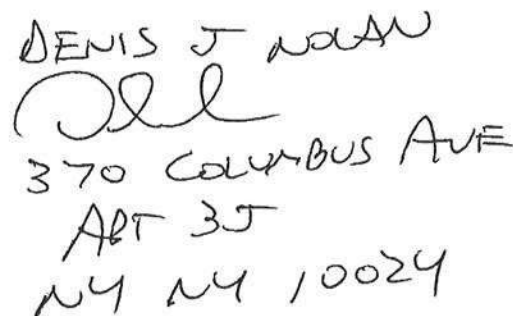 DENIS J NOLAN
370 COLUMBUS AVE
APT 3J
NY NY 10024